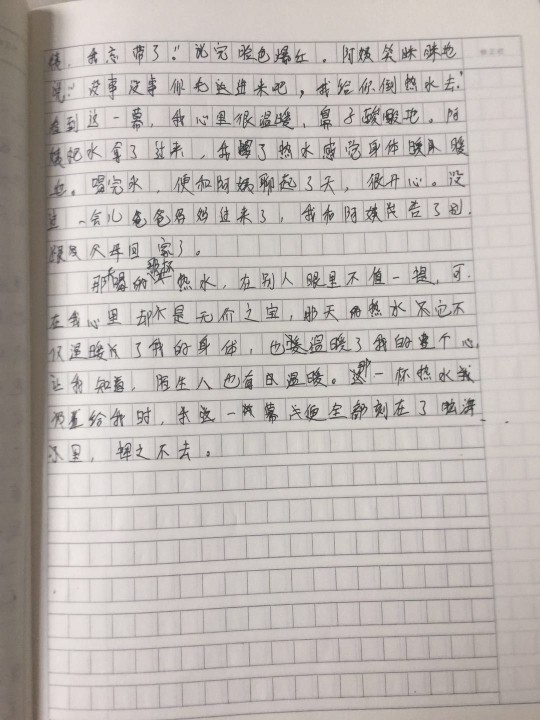 我忘带了。"说完脸色爆红。阿姨笑眯眯地
说"没事没事你先进来吧，我给你倒热水去。"
看到这一幕，我心里很温暖，鼻子酸酸地。阿
姨把水拿了过来，我喝了热水感觉身体暖暖
地。喝完水，便和阿姨聊起了天，很开心。没
过一会儿爸爸妈妈过来了，我和阿姨告了别
跟父母回家了。
那天喝的那杯热水，在别人眼里不值一提，可
在我心里却是无价之宝，那天的热水不
仅温暖了我的身体，也温暖了我的整个心，
让我知道，陌生人也有温暖。那一杯热水
给我时，这一幕便全部刻在了脑海
里，挥之不去。